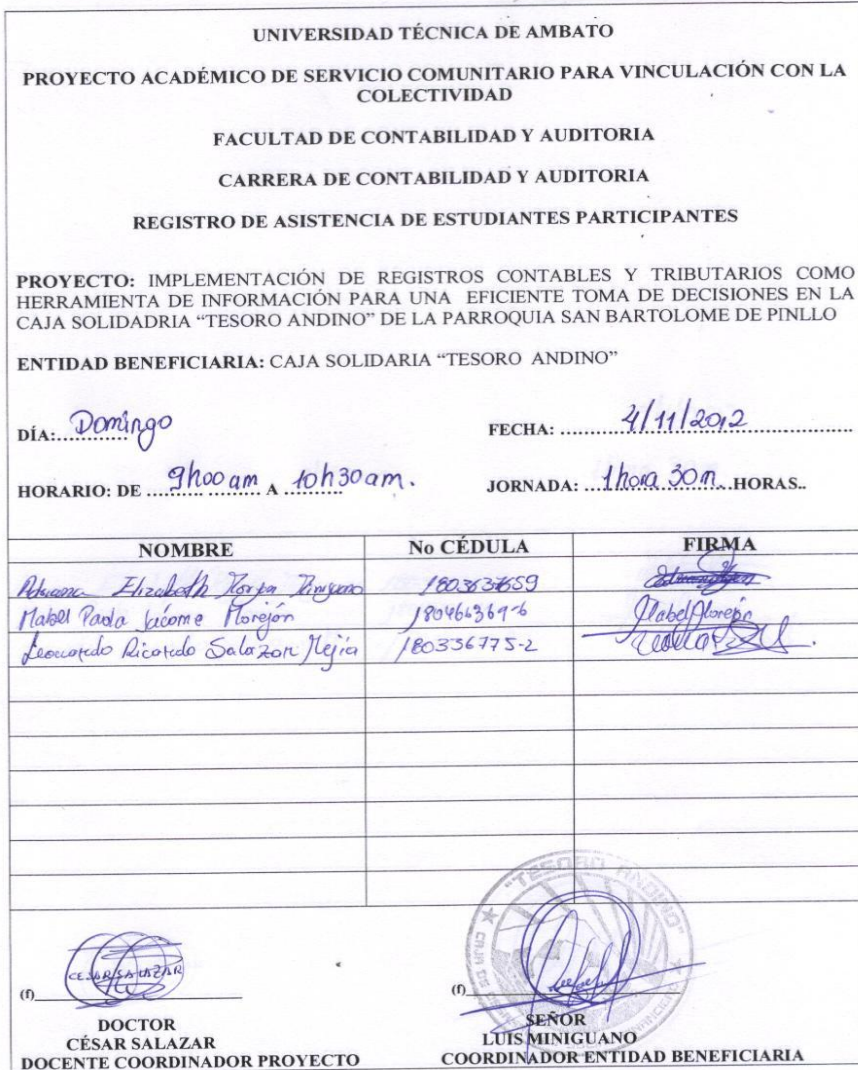 UNIVERSIDAD TÉCNICA DE AMBATO
PROYECTO ACADÉMICO DE SERVICIO COMUNITARIO PARA VINCULACIÓN CON LA
COLECTIVIDAD
FACULTAD DE CONTABILIDAD Y AUDITORIA
CARRERA DE CONTABILIDAD Y AUDITORIA
REGISTRO DE ASISTENCIA DE ESTUDIANTES PARTICIPANTES
PROYECTO: IMPLEMENTACIÓN DE REGISTROS CONTABLES Y TRIBUTARIOS COMO
HERRAMIENTA DE INFORMACIÓN PARA UNA EFICIENTE TOMA DE DECISIONES EN LA
CAJA SOLIDADRIA “TESORO ANDINO” DE LA PARROQUIA SAN BARTOLOME DE PINLLO
ENTIDAD BENEFICIARIA: CAJA SOLIDARIA “TESORO ANDINO”
DÍA: Domingo FECHA: 4/11/2012
HORARIO: DE 9h00 am A 10h30 am. JORNADA: 1hora 30m HORAS..
NOMBRE No CÉDULA FIRMA
Elizabeth 1803637659
Mabel Paola Jácome Morejón 180464369-6 Mabel Morejón
Leonardo Ricardo Salazar Mejía 180336775-2
"TESORO ANDINO"
CESAR SALAZAR
(f) (f)
DOCTOR SEÑOR
CÉSAR SALAZAR LUIS MINIGUANO
DOCENTE COORDINADOR PROYECTO COORDINADOR ENTIDAD BENEFICIARIA